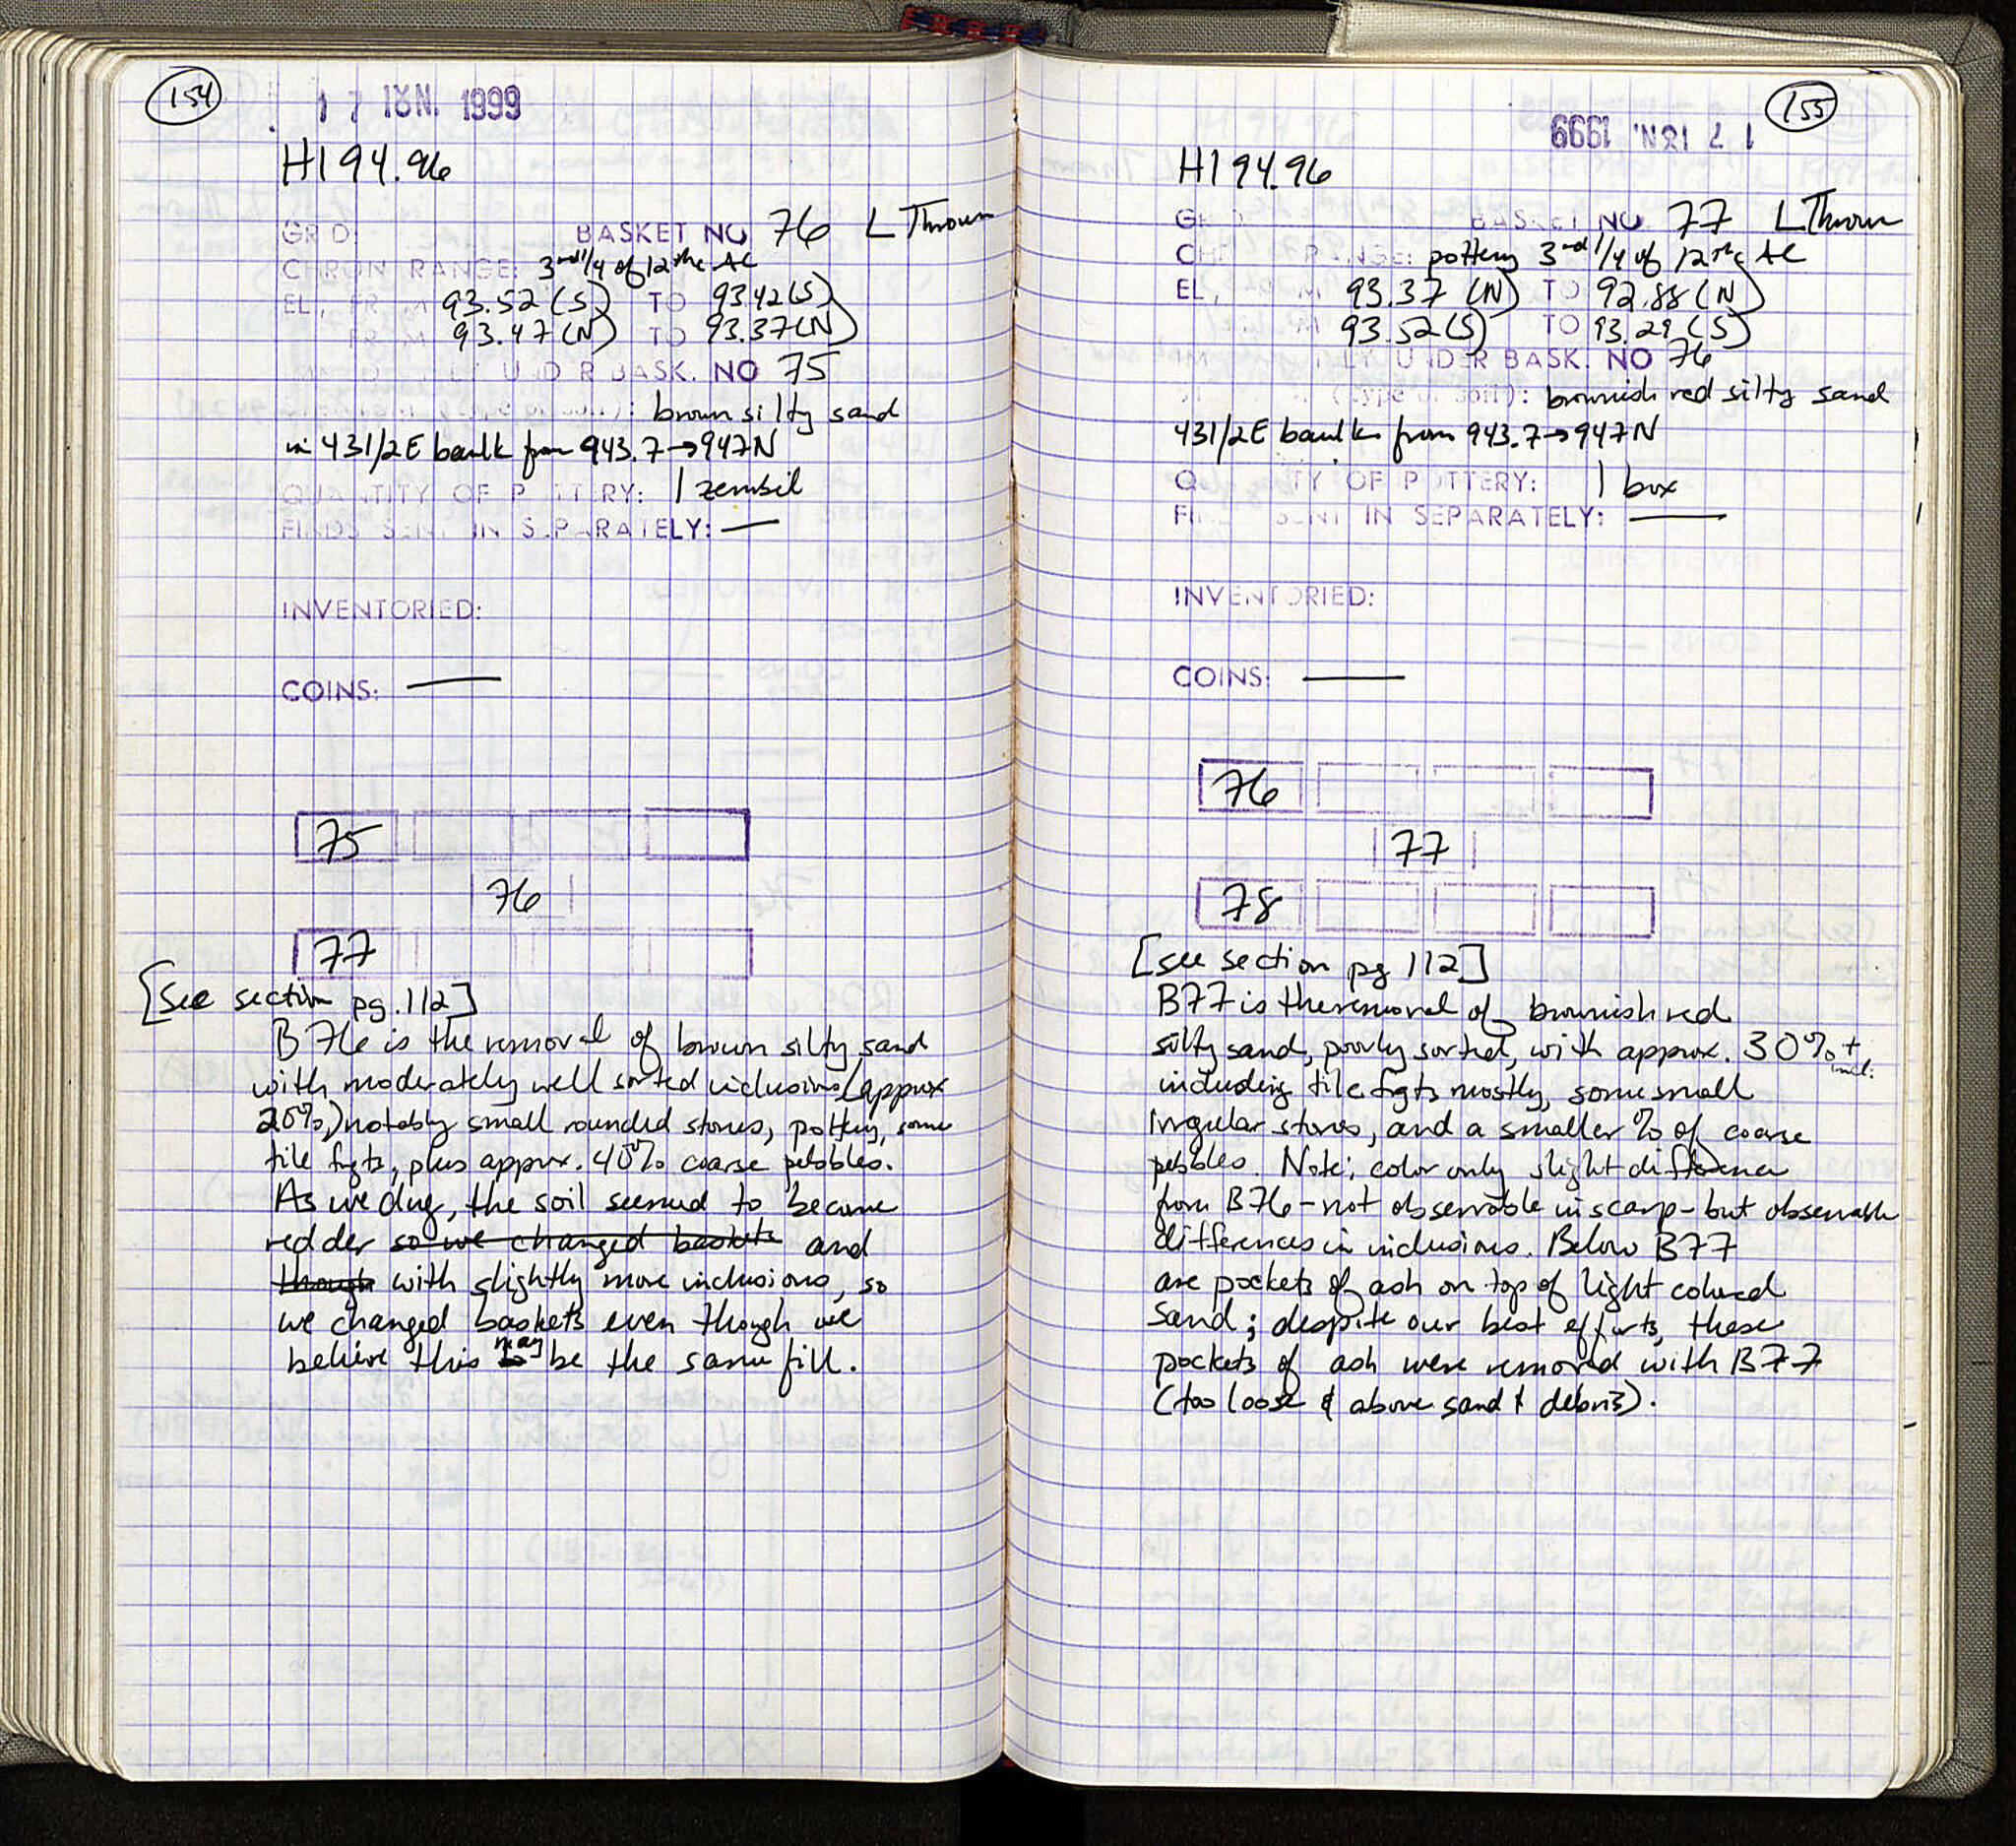 154
17 JUN. 1999
H194.96
GRID: BASKET NO 76 L Thrown
CHRON RANGE: 3rd 1/4 of 12th c AC
EL., FROM 93.52 (S) TO 93.42 (S)
FROM 93.47 (N) TO 93.37 (N)
UNDER BASK. NO 75
: brown silty sand
in 431/2E baulk from 943.7→947N
QUANTITY OF POTTERY: 1 zembil
FINDS SENT IN SEPARATELY: —
INVENTORIED:
COINS: —
75
76
77
[See section pg. 112]
B76 is the removal of brown silty sand
with moderately well sorted inclusions (approx
20%) notably small rounded stones, pottery, some
tile fgts, plus approx. 40% coarse pebbles.
As we dug, the soil seemed to become
redder so we changed baskets and
though with slightly more inclusions, so
we changed baskets even though we
believe this may be the same fill.
155
17 JUN. 1999
H194.96
GRID: BASKET NO 77 L Thrown
CHRON RANGE: pottery 3rd 1/4 of 12th c AC
EL., 93.37 (N) TO 92.88 (N)
93.52 (S) TO 93.29 (S)
UNDER BASK. NO 76
(type of soil): brownish red silty sand
431/2E baulk from 943.7→947N
QUANTITY OF POTTERY: 1 box
FINDS SENT IN SEPARATELY: —
INVENTORIED:
COINS: —
76
77
78
[see section pg 112]
B77 is the removal of brownish red
silty sand, poorly sorted, with approx. 30%+ incl.
including tile fgts mostly, some small
irregular stones, and a smaller % of coarse
pebbles. Note: color only slight difference
from B76 - not observable in scarp - but observable
differences in inclusions. Below B77
are pockets of ash on top of light colored
sand; despite our best efforts, these
pockets of ash were removed with B77
(too loose & above sand & debris).